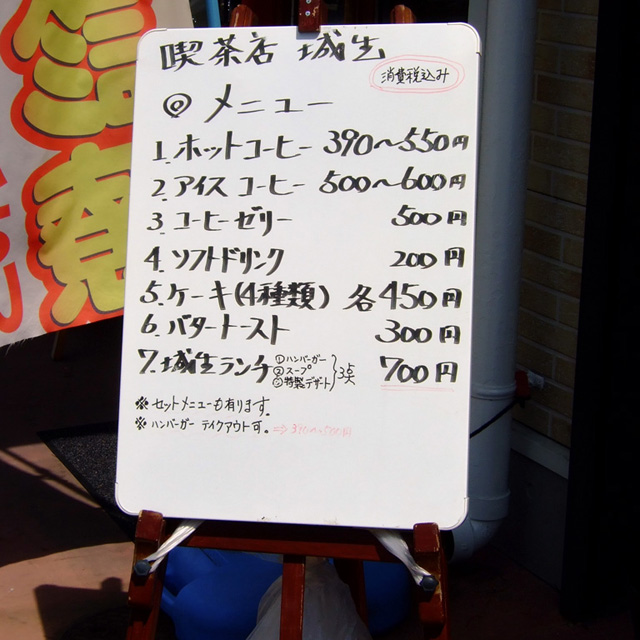 喫茶店 城生
消費税込み
◎メニュー
1. ホットコーヒー 390〜550円
2. アイスコーヒー 500〜600円
3. コーヒーゼリー 500円
4. ソフトドリンク 200円
5. ケーキ(4種類) 各450円
6. バタートースト 300円
7. 城生ランチ ①ハンバーガー ②スープ ③特製デザート 3点 700円
※ セットメニューも有ります。
※ ハンバーガー テイクアウト可。⇒390〜500円